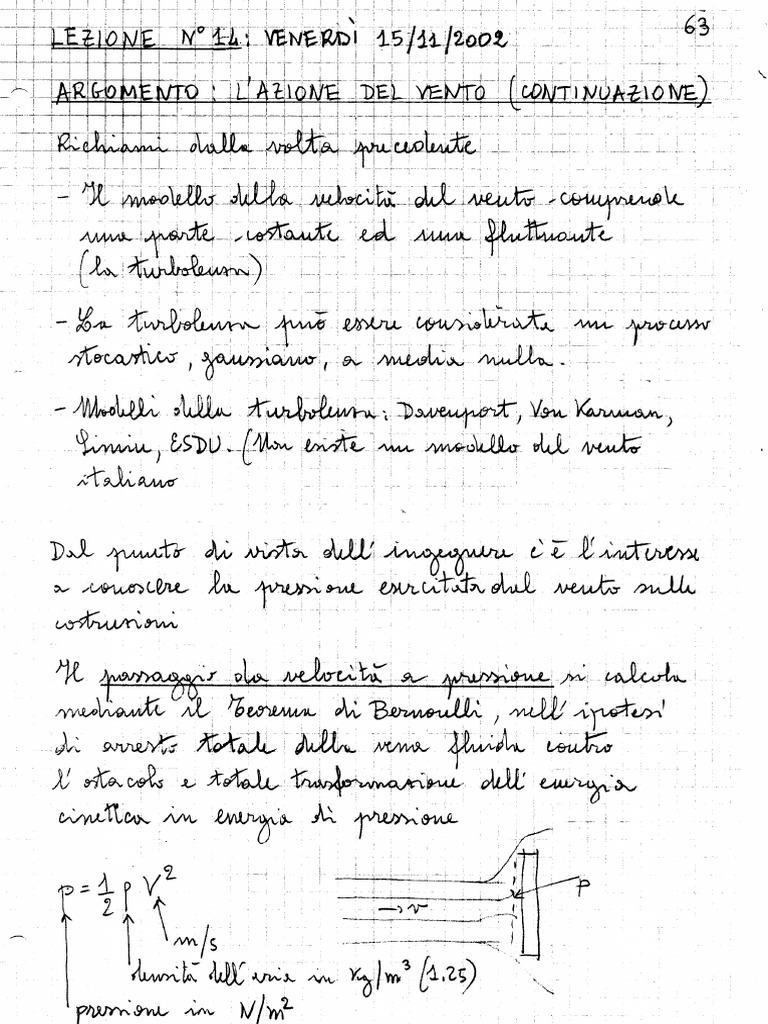 63
LEZIONE N° 14: VENERDÌ 15/11/2002
ARGOMENTO: L'AZIONE DEL VENTO (CONTINUAZIONE)
Richiami dalla volta precedente
- Il modello della velocità del vento comprende
una parte costante ed una fluttuante
(la turbolenza)
- La turbolenza può essere considerata un processo
stocastico, gaussiano, a media nulla.
- Modelli della turbolenza: Davenport, Von Karman,
Simiu, ESDU. (Non esiste un modello del vento
italiano
Dal punto di vista dell'ingegnere c'è l'interesse
a conoscere la pressione esercitata dal vento sulle
costruzioni
Il passaggio da velocità a pressione si calcola
mediante il Teorema di Bernoulli, nell'ipotesi
di arresto totale della vena fluida contro
l'ostacolo e totale trasformazione dell'energia
cinetica in energia di pressione
p = 1/2 ρ V²
→ v
p
m/s
densità dell'aria in kg/m³ (1.25)
pressione in N/m²